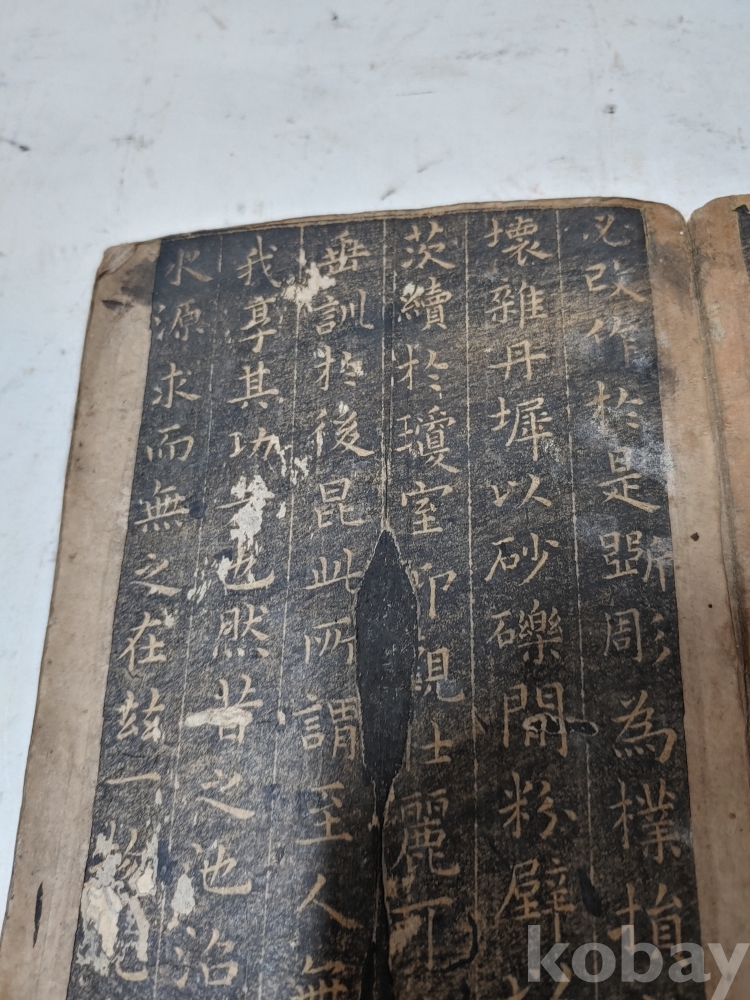 必改作於是斲彫為樸損
壞雜丹墀以砂礫閒粉壁以
茨續於瓊室麗可
垂訓於後昆此所謂至人無
我享其功也然昔之池沼
水源求而無之在茲一
kobay